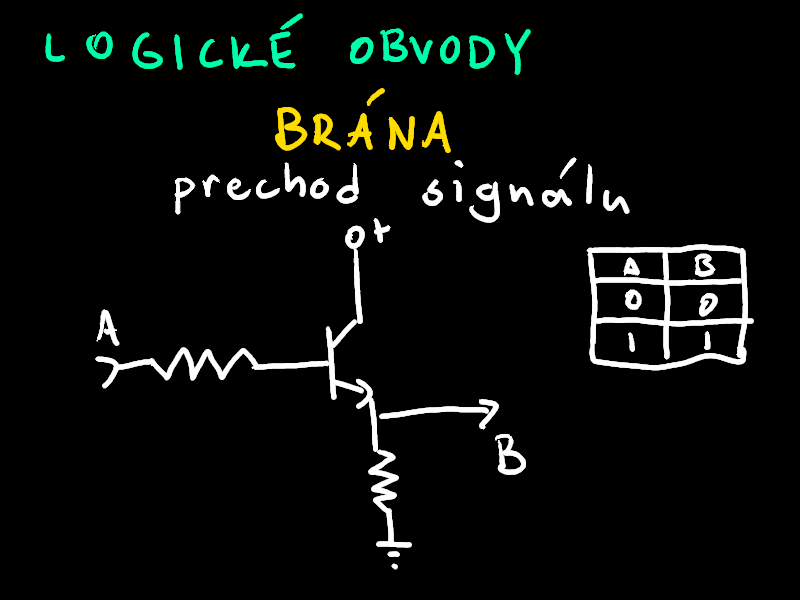 LOGICKÉ OBVODY
BRÁNA
prechod signálu
+
A
B
A B
0 0
1 1